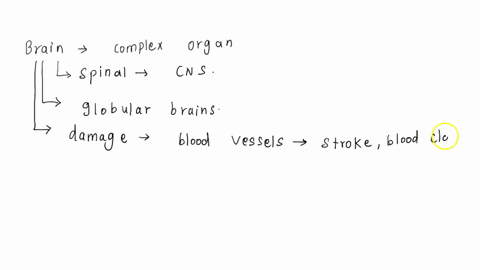 Brain → complex organ
spinal → CNS.
globular brains.
damage → blood vessels → stroke, blood clo